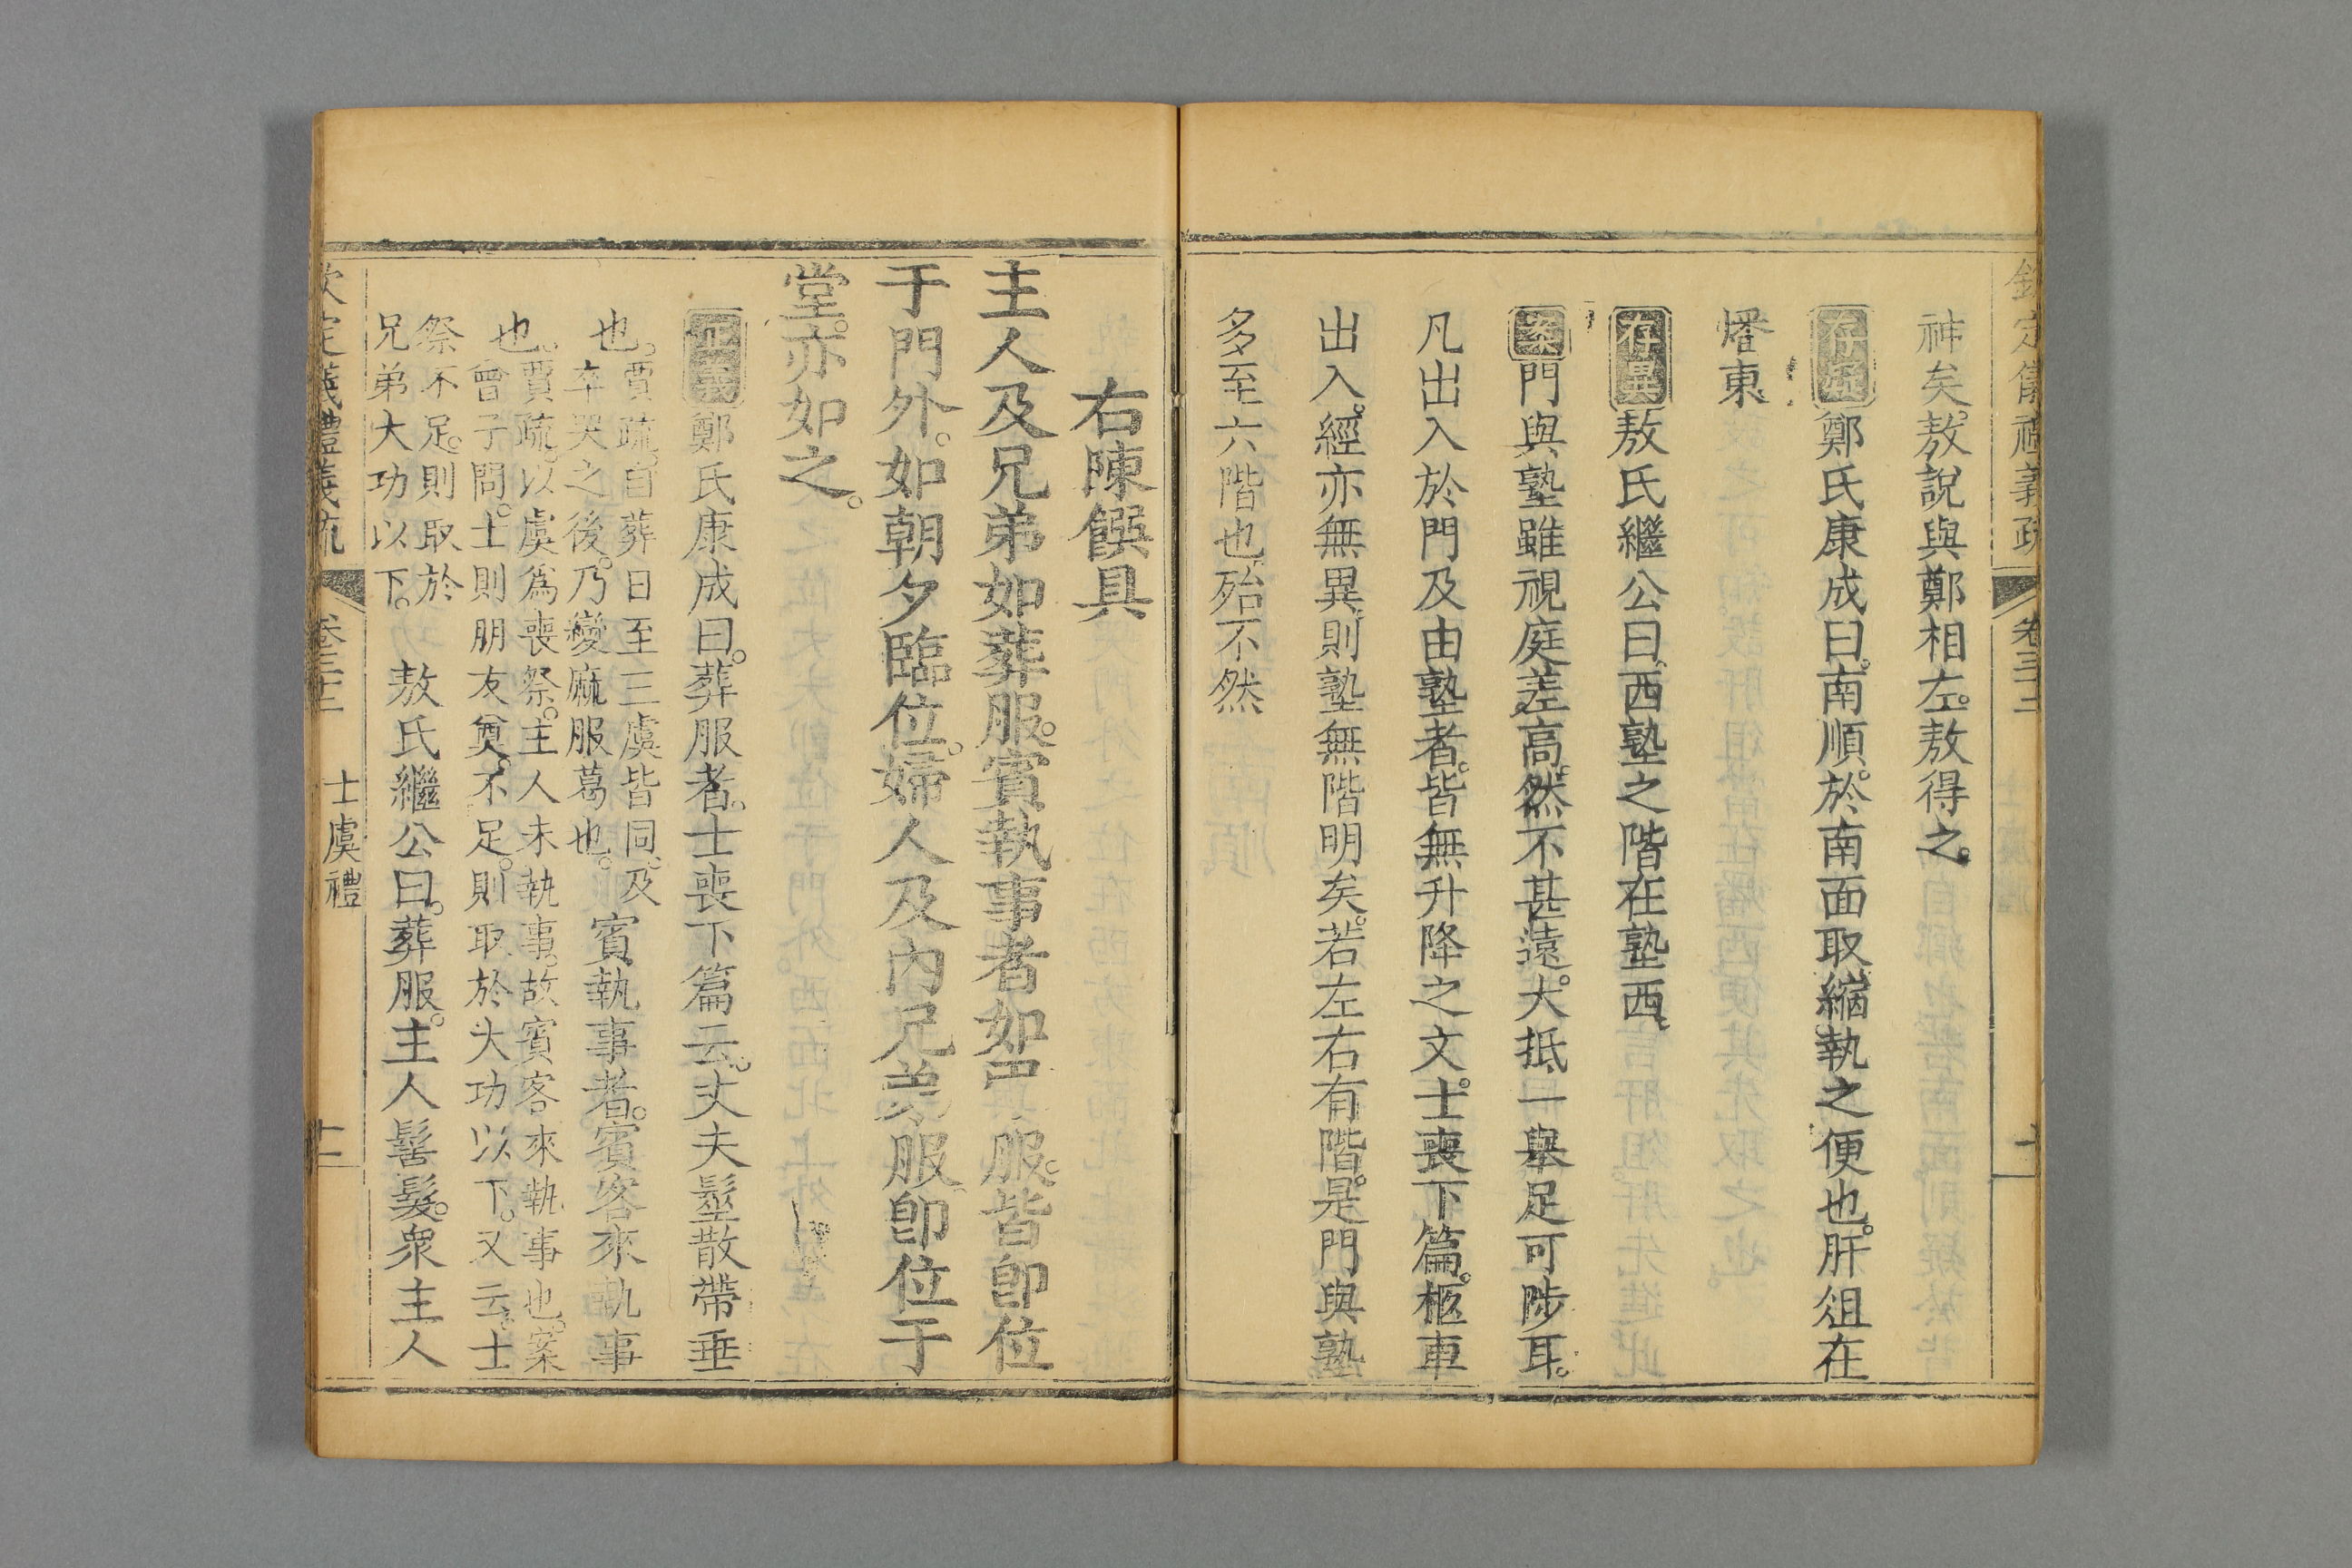 神矣敖說與鄭相左敖得之
存疑鄭氏康成曰南順於南面取縮執之便也肝俎在
燔東
存異敖氏繼公曰西塾之階在塾西
案門與塾雖視庭差高然不甚遠大抵一舉足可陟耳
凡出入於門及由塾者皆無升降之文士喪下篇柩車
出入經亦無異則塾無階明矣若左右有階是門與塾
多至六階也殆不然
右陳饌具
主人及兄弟如葬服賓執事者如弔服皆卽位
于門外如朝夕臨位婦人及內兄弟服卽位于
堂亦如之
正義鄭氏康成曰葬服者士喪下篇云丈夫髽散帶垂
也賈疏自葬日至三虞皆同及卒哭之後乃變麻服葛也賓執事者賓客來執事
也賈疏以虞爲喪祭主人未執事故賓客來執事也案曾子問士則朋友奠不足則取於大功以下又云士
祭不足則取於兄弟大功以下敖氏繼公曰葬服主人髺髮衆主人
欽定儀禮義疏 卷三十三 士虞禮